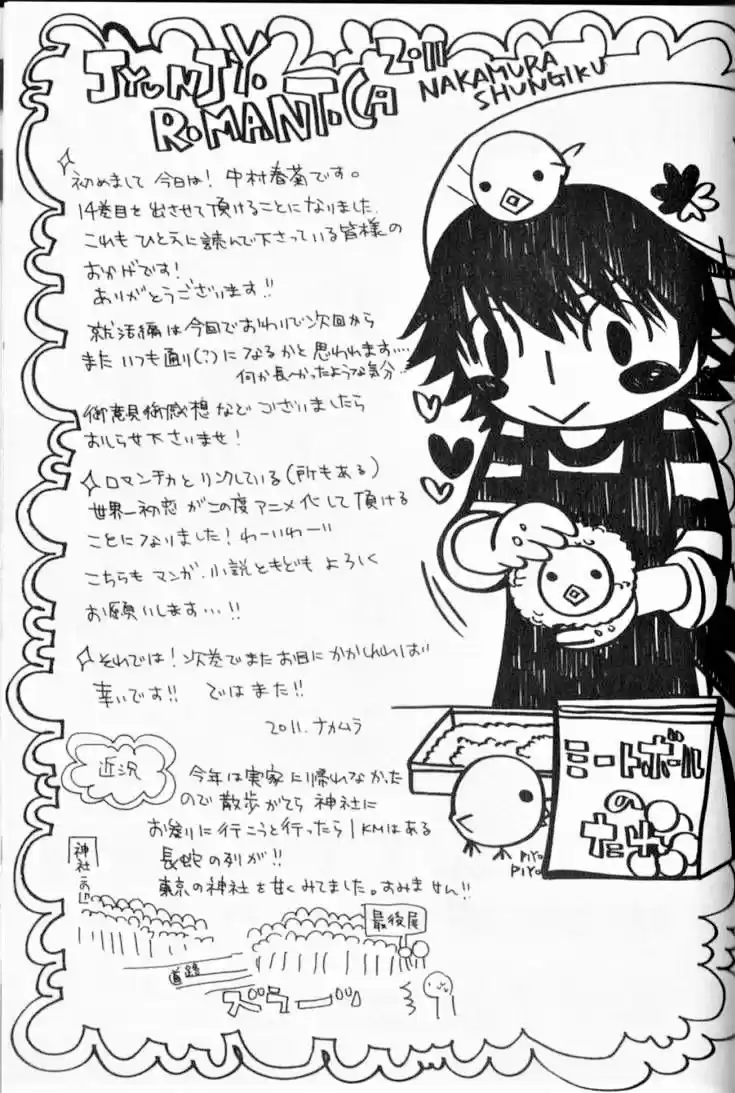 JYUNJYO
ROMANTICA
2011
NAKAMURA
SHUNGIKU
初めまして 今日は! 中村春菊です。
14巻目を出させて頂けることになりました.
これも ひとえに読んで下さっている皆様の
おかげです!
ありがとうございます!!
就活編は今回でおわりで次回から
また いつも通り(?)になるかと思われます…
何か長〜かったような気分…
御意見御感想などございましたら
おしらせ下さいませ!
ロマンチカとリンクしている(所もある)
世界一初恋がこの度アニメ化して頂ける
ことになりました! わーいわーい
こちらも マンガ、小説ともども よろしく
お願いします…!!
それでは! 次巻でまたお目にかかれれば
幸いです!! ではまた!!
2011. ナカムラ
近況
今年は実家に帰れなかった
ので散歩がてら 神社に
お参りに行こうと行ったら 1KMはある
長蛇の列が!!
東京の神社を甘くみてました。すみません!!
神社
最後尾
道路
ズラーッ
ミートボール
の
たね
PIYO
PIYO